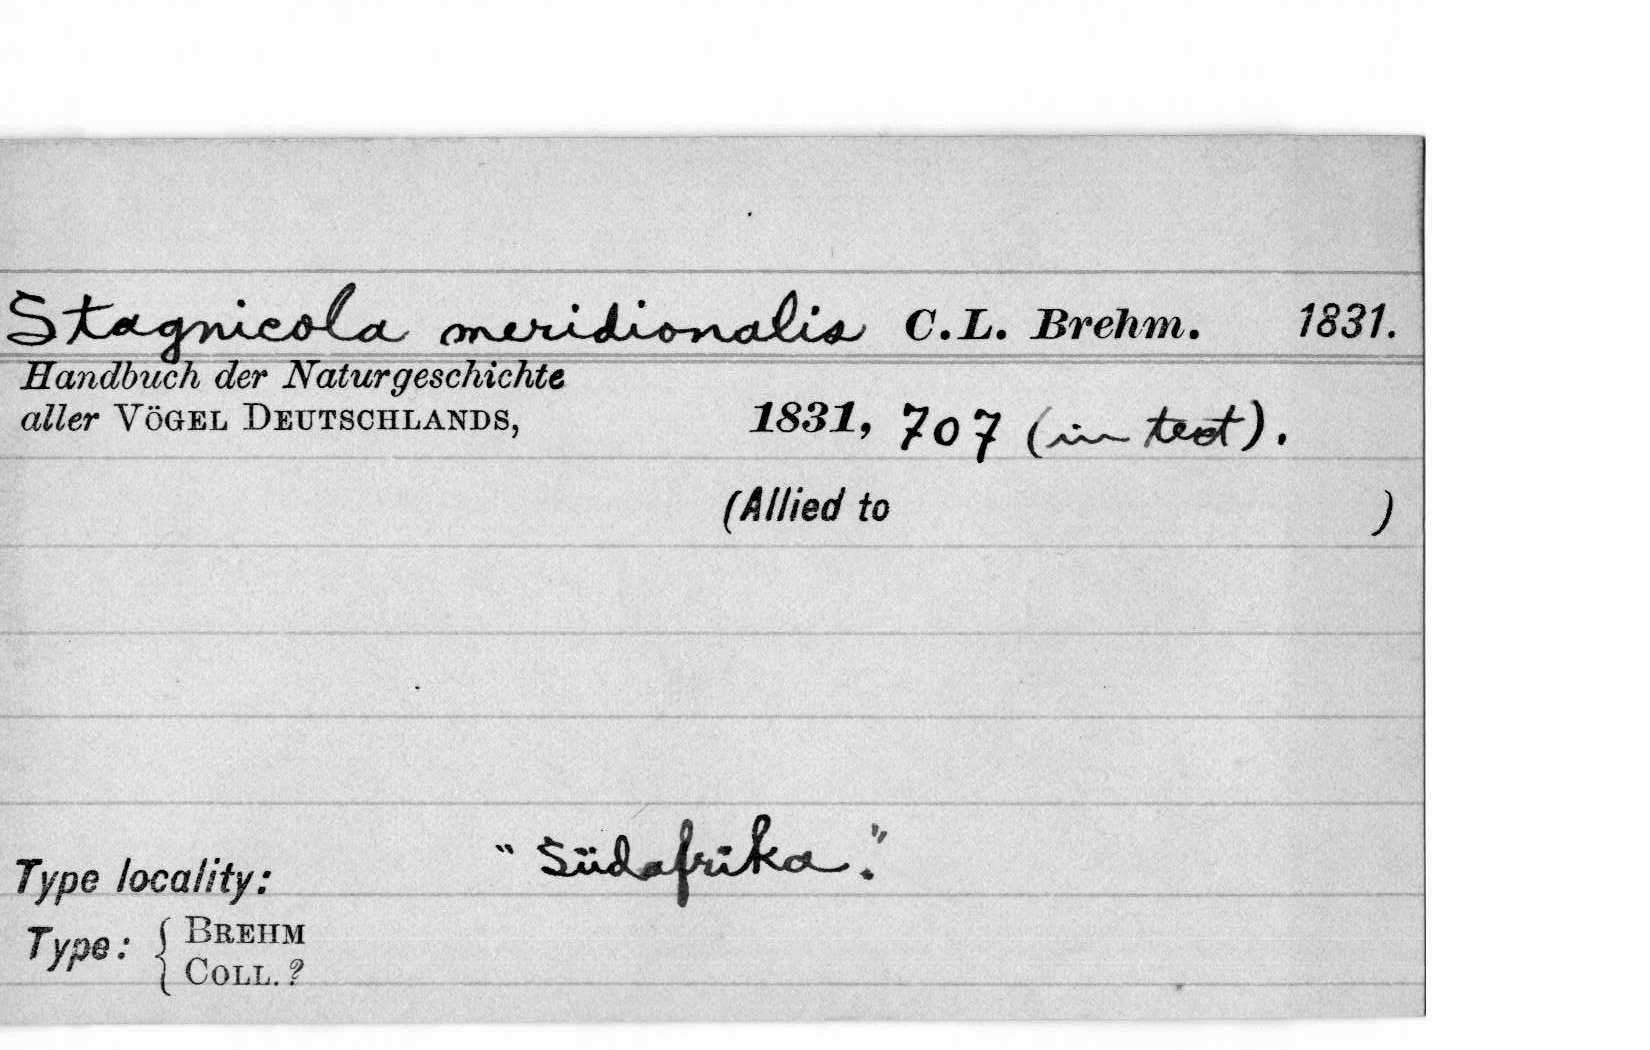 Stagnicola meridionalis C.L. Brehm. 1831.
Handbuch der Naturgeschichte
aller VÖGEL DEUTSCHLANDS, 1831, 707 (in text).
(Allied to )
Type locality: "Südafrika."
Type: { BREHM
COLL. ?